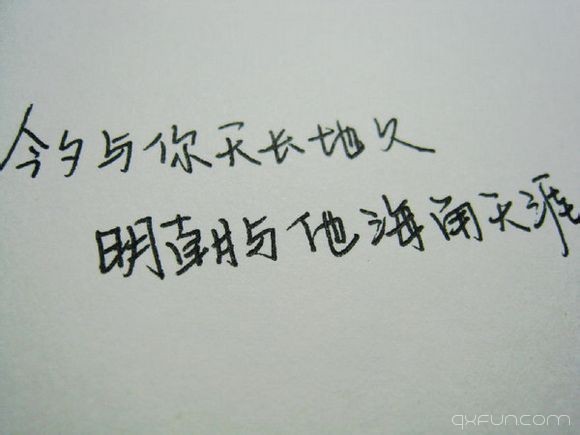 今夕与你天长地久
明朝与他海角天涯
qxfun.com